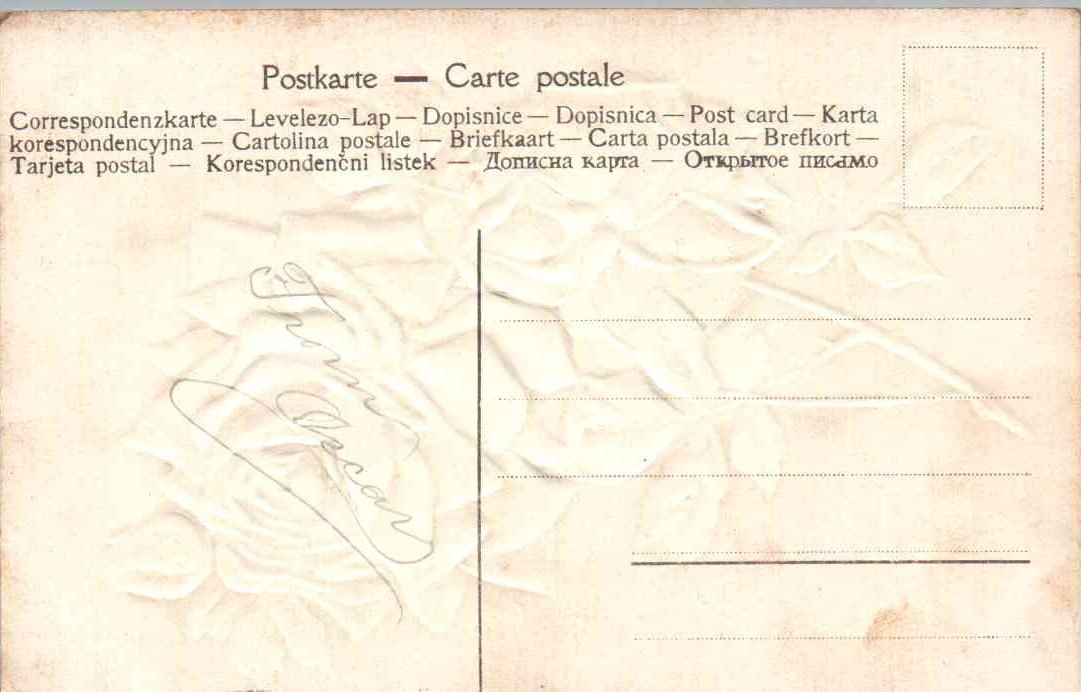 Postkarte — Carte postale
Correspondenzkarte — Levelezo-Lap — Dopisnice — Dopisnica — Post card — Karta
korespondencyjna — Cartolina postale — Briefkaart — Carta postala — Brefkort —
Tarjeta postal — Korespondenčni listek — Дописна карта — Открытое писамо
From
Oscar